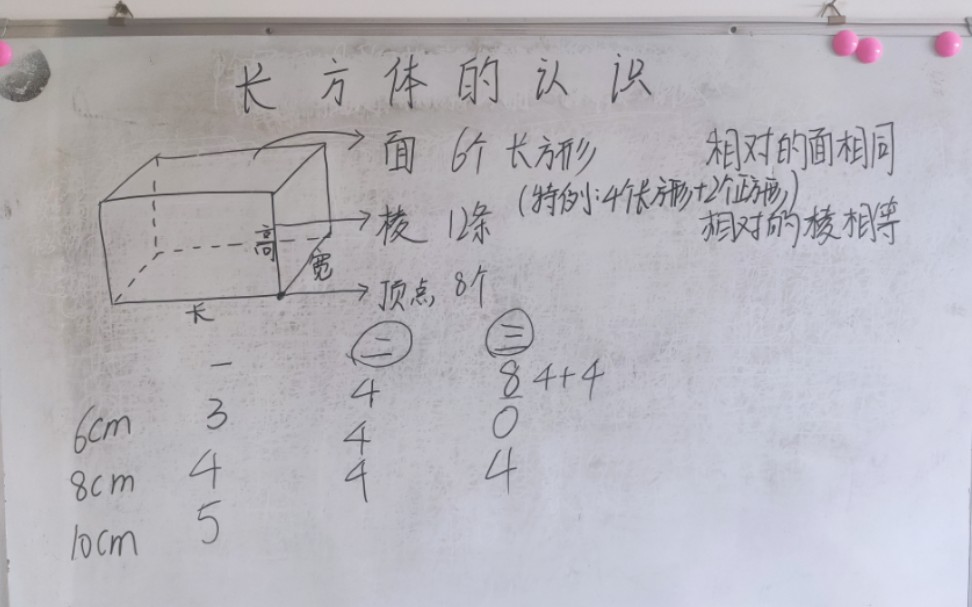 长方体的认识
面 6个 长方形 相对的面相同
(特例:4个长方形+2个正方形)
棱 12条 相对的棱相等
顶点 8个
高
宽
长
一 二 三
6cm 3 4 8 4+4
8cm 4 4 0
10cm 5 4 4